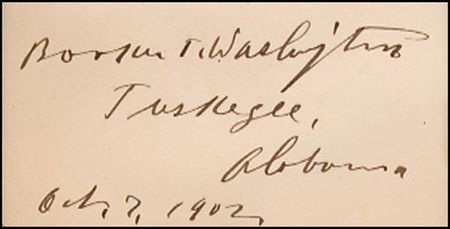 Booker T. Washington
Tuskegee,
Alabama
Oct. 7, 1902.